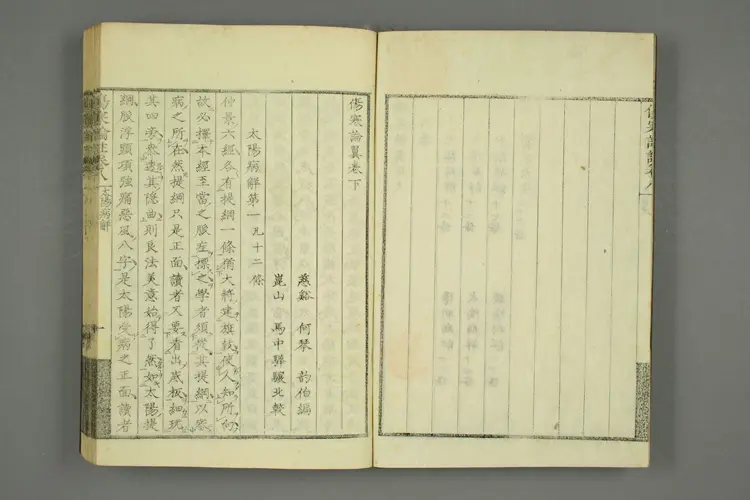 傷寒論翼卷下
慈谿 何琴 韵伯編
崑山 馬中驊驤北較
太陽病解第一 凡十二條
仲景六經各有提綱一條猶大將建旗鼓使人知所向
故必擇本經至當之脉症標之學者須從其提綱以察
病之所在然提綱只是正面讀者又要看出底板細玩
其四旁參透其隱曲則良法美意始得了然如太陽提
綱脉浮頭項強痛惡寒八字是太陽受病之正面讀者
太陽病解